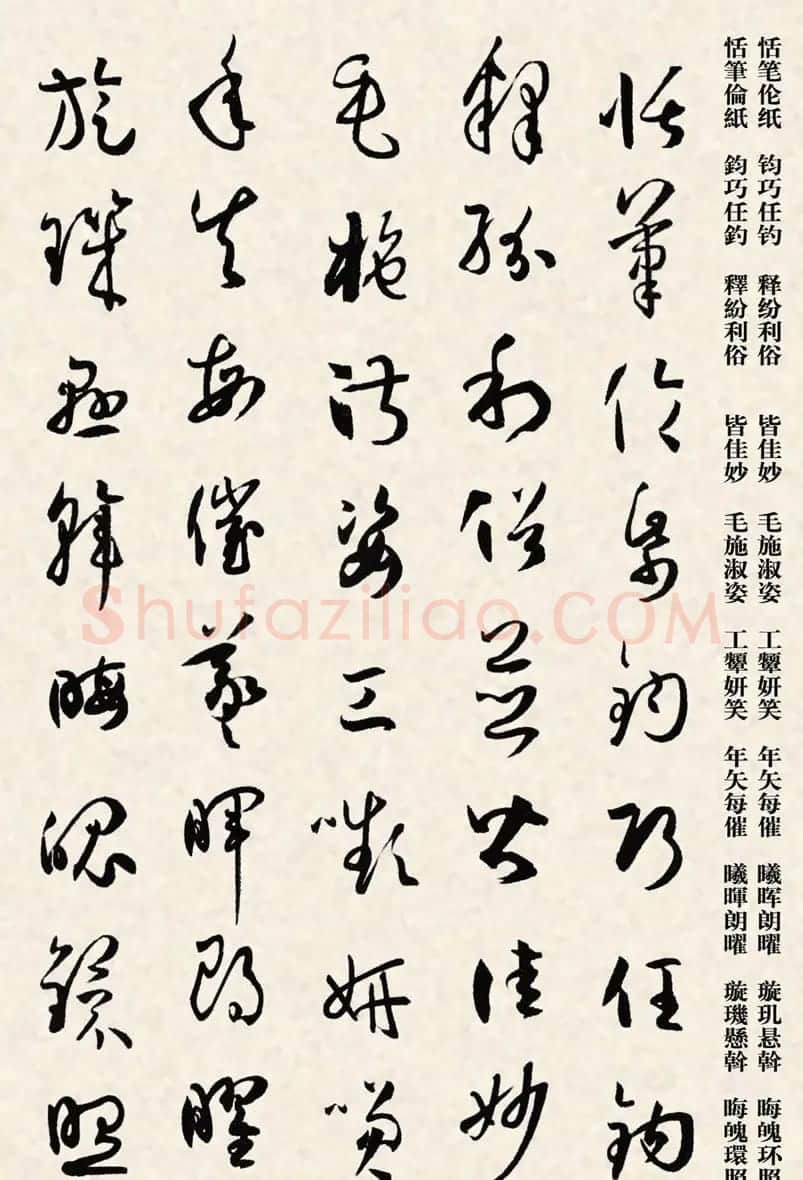 恬笔伦纸 钧巧任钓 释纷利俗 皆佳妙 毛施淑姿 工颦妍笑 年矢每催 曦晖朗曜 璇玑悬斡 晦魄环照
恬筆倫紙 鈞巧任釣 釋紛利俗 皆佳妙 毛施淑姿 工顰妍笑 年矢每催 曦暉朗曜 璇璣懸斡 晦魄環照
恬筆倫紙鈞巧任釣
釋紛利俗並皆佳妙
毛施淑姿工嚬妍笑
年矢每催羲暉朗曜
旋璣懸斡晦魄環照
Shufaziliao.COM